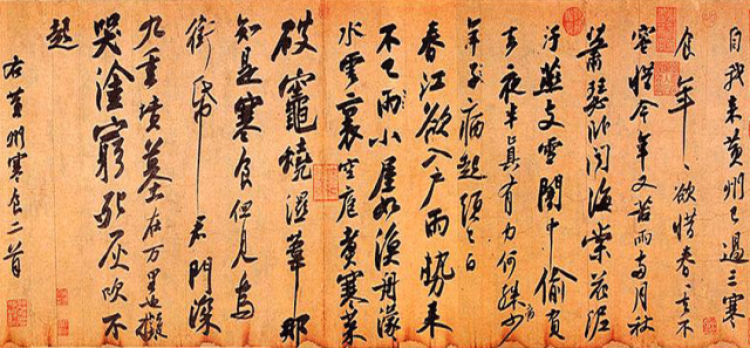 自我来黃州已過三寒
食年〻欲惜春〻去不
容惜今年又苦雨兩月秋
蕭瑟卧聞海棠花泥
汙燕支雪闇中偷負
去夜半真有力何殊病少
年子病起頭已白
春江欲入戶雨勢来
不已雨小屋如漁舟濛〻
水雲裏空庖煮寒菜
破竈燒濕葦那
知是寒食但見烏
銜帋君門深
九重墳墓在万里也擬
哭塗窮死灰吹不
起
右黃州寒食二首